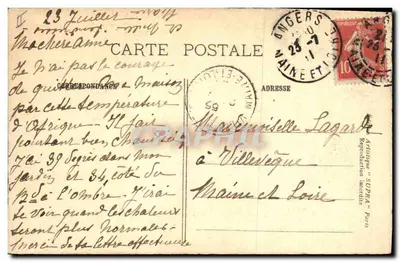 23 Juillet
Ma chère amie
Je n'ai pas le courage
de quitter ma maison
par cette température
d'Afrique - Il fait
pourtant bien chaud ici
J'ai 39 degrés dans mon
jardin et 34, côté du
à l'Ombre - J'irai
te voir quand les chaleurs
seront plus normales -
merci de ta lettre affectueuse
CARTE POSTALE
CORRESPONDANCE
ADRESSE
Mademoiselle Lagarde
à Villevêque
Maine et Loire
ANGERS
23 -7
11
MAINE ET LOIRE
10
MAINE-ET-LOIRE
Artistique "SUPRA" Paris
Reproduction interdite